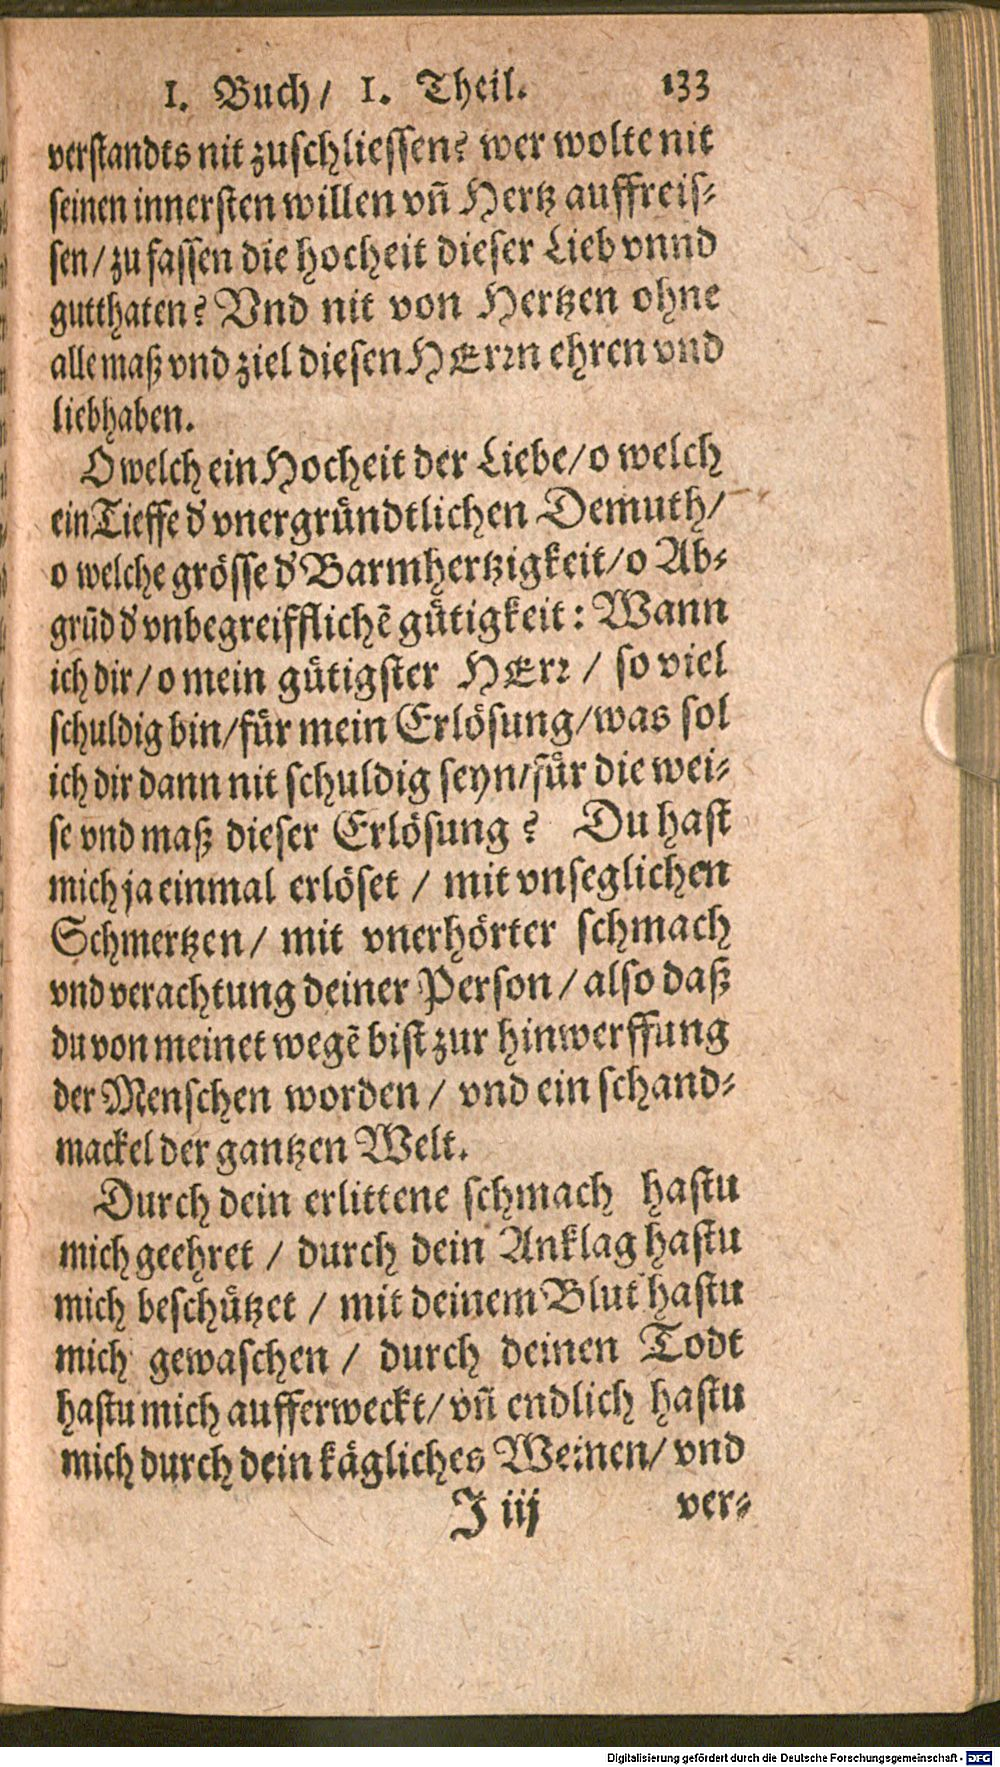 1. Buch/ 1. Theil. 133
verstandts nit zuschliessen? wer wolte nit
seinen innersten willen vñ Hertz auffreis-
sen/ zu fassen die hocheit dieser Lieb vnnd
gutthaten? Vnd nit von Hertzen ohne
alle maß vnd ziel diesen HErrn ehren vnd
liebhaben.
O welch ein Hocheit der Liebe/ o welch
ein Tieffe d' vnergründtlichen Demuth/
o welche grösse d' Barmhertzigkeit/ o Ab-
grūd d' vnbegreifflichē gütigkeit: Wann
ich dir/ o mein gütigster HErr / so viel
schuldig bin/ für mein Erlösung/ was sol
ich dir dann nit schuldig seyn/ für die wei-
se vnd maß dieser Erlösung? Du hast
mich ja einmal erlöset / mit vnseglichen
Schmertzen/ mit vnerhörter schmach
vnd verachtung deiner Person / also daß
du von meinet wegē bist zur hinwerffung
der Menschen worden / vnd ein schand-
mackel der gantzen Welt.
Durch dein erlittene schmach hastu
mich geehret / durch dein Anklag hastu
mich beschützet / mit deinem Blut hastu
mich gewaschen / durch deinen Todt
hastu mich aufferweckt/ vñ endlich hastu
mich durch dein kägliches Weinen/ vnd
J iij ver-
Digitalisierung gefördert durch die Deutsche Forschungsgemeinschaft - DFG